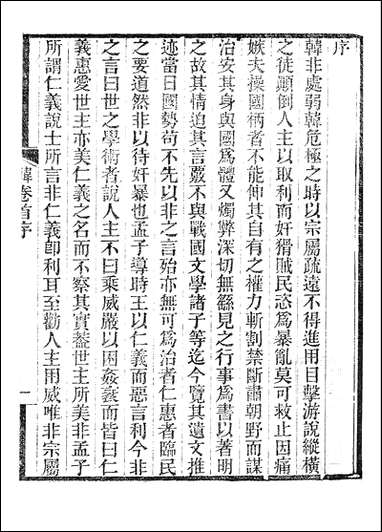 序
韓非處弱韓危極之時以宗屬疏遠不得進用目擊游說縱橫
之徒顛倒人主以取利而奸猾賊民恣爲暴亂莫可救止因痛
嫉夫操國柄者不能伸其自有之權力斬割禁斷肅朝野而謀
治安其身與國爲體又燭弊深切無繇見之行事爲書以著明
之故其情迫其言覈不與戰國文學諸子等迄今覽其遺文推
迹當日國勢苟不先以非之言殆亦無可爲治者仁惠者臨民
之要道然非以待奸暴也孟子導時王以仁義而惡言利今非
之言曰世之學術者說人主不曰乘威嚴以困姦衺而皆曰仁
義惠愛世主亦美仁義之名而不察其實蓋世主所美非孟子
所謂仁義說士所言非仁義卽利耳至勸人主用威唯非宗屬
韓 卷首序
一